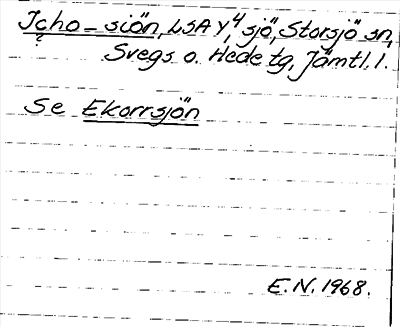 Icho-siön, LSA Y, 4 sjö, Storsjö sn,
Svegs o. Hede tg, Jämtl. l.
Se Ekorrsjön
E.N. 1968.